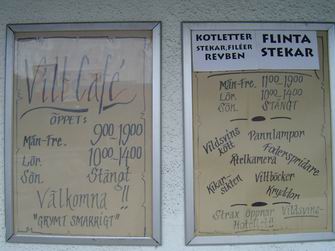 Vilt Café
ÖPPET:
Mån-Fre. 900-19.00
Lör. 10.00-14.00
Sön. Stängt
Välkomna!!
"GRYMT SMARRIGT"
KOTLETTER
STEKAR, FILÉER
REVBEN
FLINTA
STEKAR
Mån-Fre. 11.00-19.00
Lör. 10.00-14.00
Sön. STÄNGT
Vildsvins
kött
Pannlampor
Foderspridare
Åtelkamera
Kikar-
sikten
Viltböcker
Kryddor
Strax öppnar Vildsvins-
Hotell!!